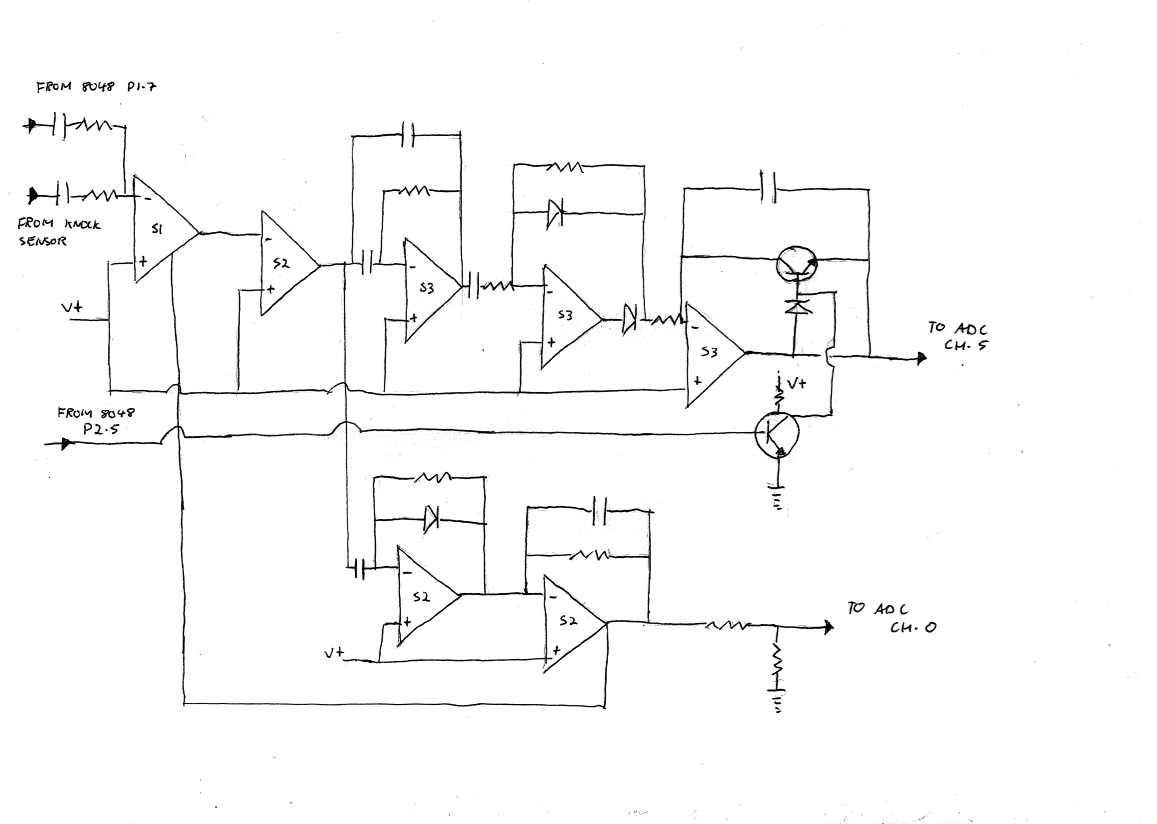 FROM 8048 P1.7
FROM KNOCK
SENSOR
-
+
S1
V+
-
+
S2
-
+
S3
-
+
S3
-
+
S3
TO ADC
CH.5
V+
FROM 8048
P2.5
-
+
S2
V+
-
+
S2
TO ADC
CH.0